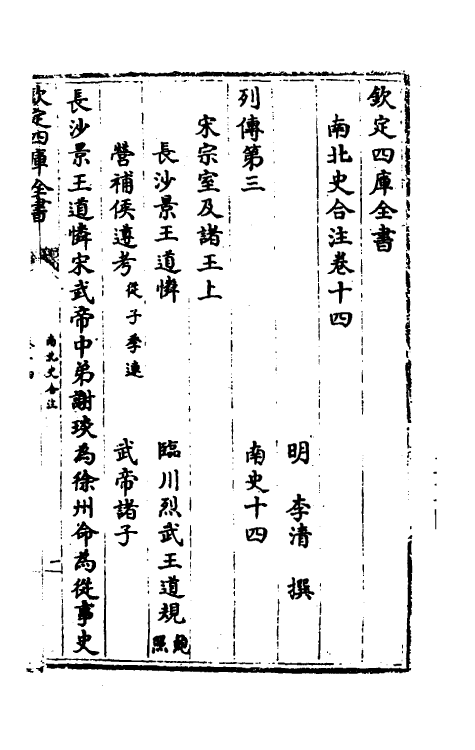 欽定四庫全書
南北史合注卷十四
明 李清 撰
列傳第三 南史十四
宋宗室及諸王上
長沙景王道憐 臨川烈武王道規 鮑照
營補侯遵考 從子季連 武帝諸子
長沙景王道憐宋武帝中弟謝琰為徐州命為從事史
欽定四庫全書
南北史合注